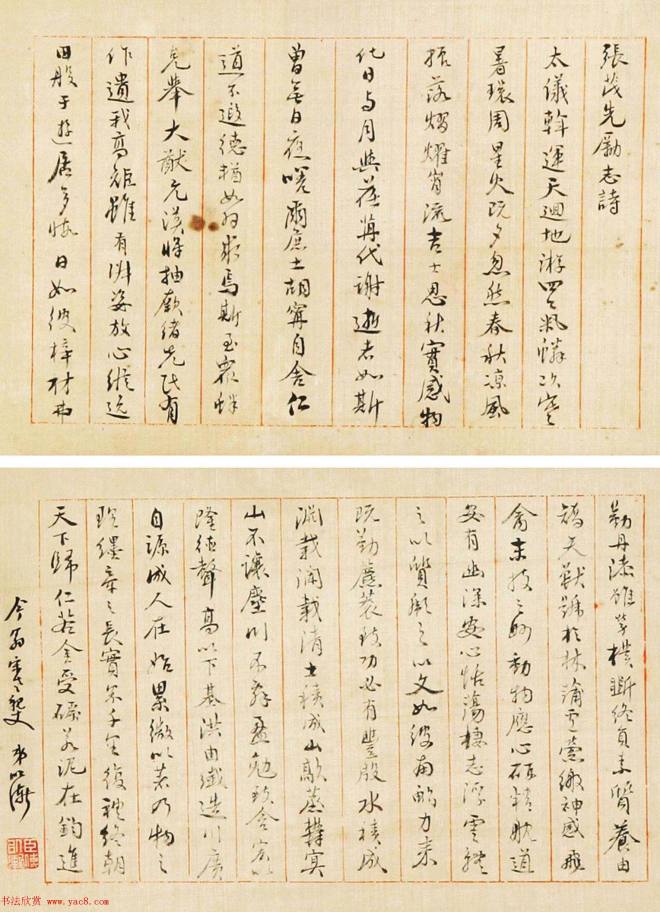 張茂先勵志詩
太儀斡運天迴地游四氣鱗次寒
暑環周星火既夕忽然春秋涼風
振落熠燿宵流吉士思秋實感物
化日與月與荏苒代謝逝者如斯
曾無日夜嗟爾庶士胡寧自舍仁
道不遐德輶如羽求焉斯至眾鮮
克舉大猷玄漠將抽厥緒先民有
作遺我高矩雖有淑姿放心縱逸
田般于遊居多暇日如彼梓材弗
勤丹漆雖勞樸斲終負素質養由
矯矢獸號於林蒲盧縈繳神感飛
禽末技之妙動物應心研精耽道
安有幽深安心恬蕩棲志浮雲體
之以質彪之以文如彼南畝力耒
既勤藨蓘致功必有豐殷水積成
淵載瀾載清土積成山歊蒸鬱冥
山不讓塵川不辭盈勉致含弘以
隆德聲高以下基洪由纖造川廣
自源成人在始累微以著乃物之
理纆牽之長實累千里復禮終朝
天下歸仁若金受礪若泥在鈞進
今翁 弟以漸
书法欣赏 www.yac8.com